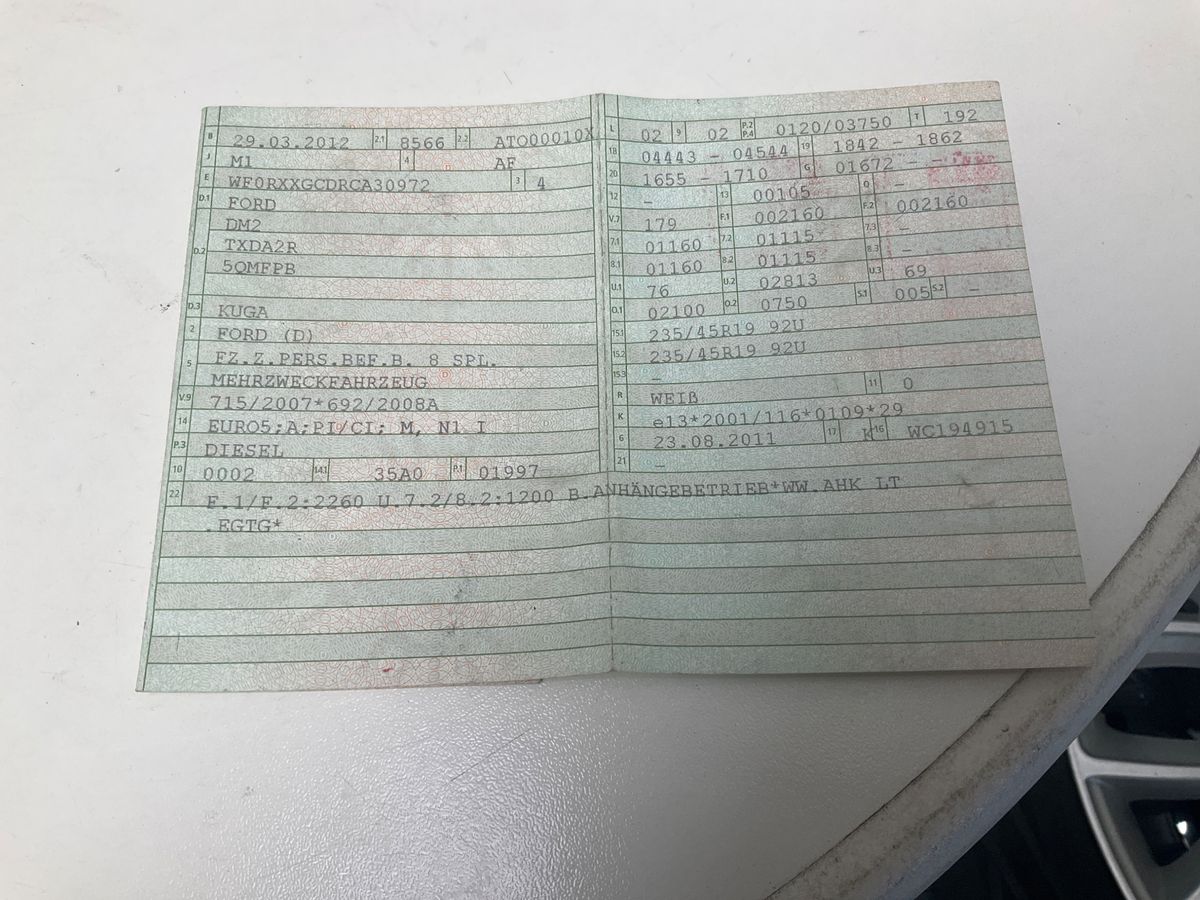 B 29.03.2012 2.1 8566 2.2 ATO00010X
J M1 4 AF
E WF0RXXGCDRCA30972 3 4
D.1 FORD
DM2
D.2 TXDA2R
5QMFPB
D.3 KUGA
2 FORD (D)
5 FZ.Z.PERS.BEF.B. 8 SPL.
MEHRZWECKFAHRZEUG
V.9 715/2007*692/2008A
14 EURO5;A;PI/CI; M, N1 I
P.3 DIESEL
10 0002 14.1 35A0 P.1 01997
L 02 9 02 P.2 P.4 0120/03750 T 192
18 04443 - 04544 19 1842 - 1862
20 1655 - 1710 G 01672 - -
12 - 13 00105 Q -
V.7 179 F.1 002160 F.2 002160
7.1 01160 7.2 01115 7.3 -
8.1 01160 8.2 01115 8.3 -
U.1 76 U.2 02813 U.3 69
O.1 02100 O.2 0750 S.1 005 S.2 -
15.1 235/45R19 92U
15.2 235/45R19 92U
15.3 -
R WEIß 11 0
K e13*2001/116*0109*29
6 23.08.2011 17 K 16 WC194915
21 -
22 F.1/F.2:2260 U.7.2/8.2:1200 B.ANHÄNGEBETRIEB*WW.AHK LT
.EGTG*